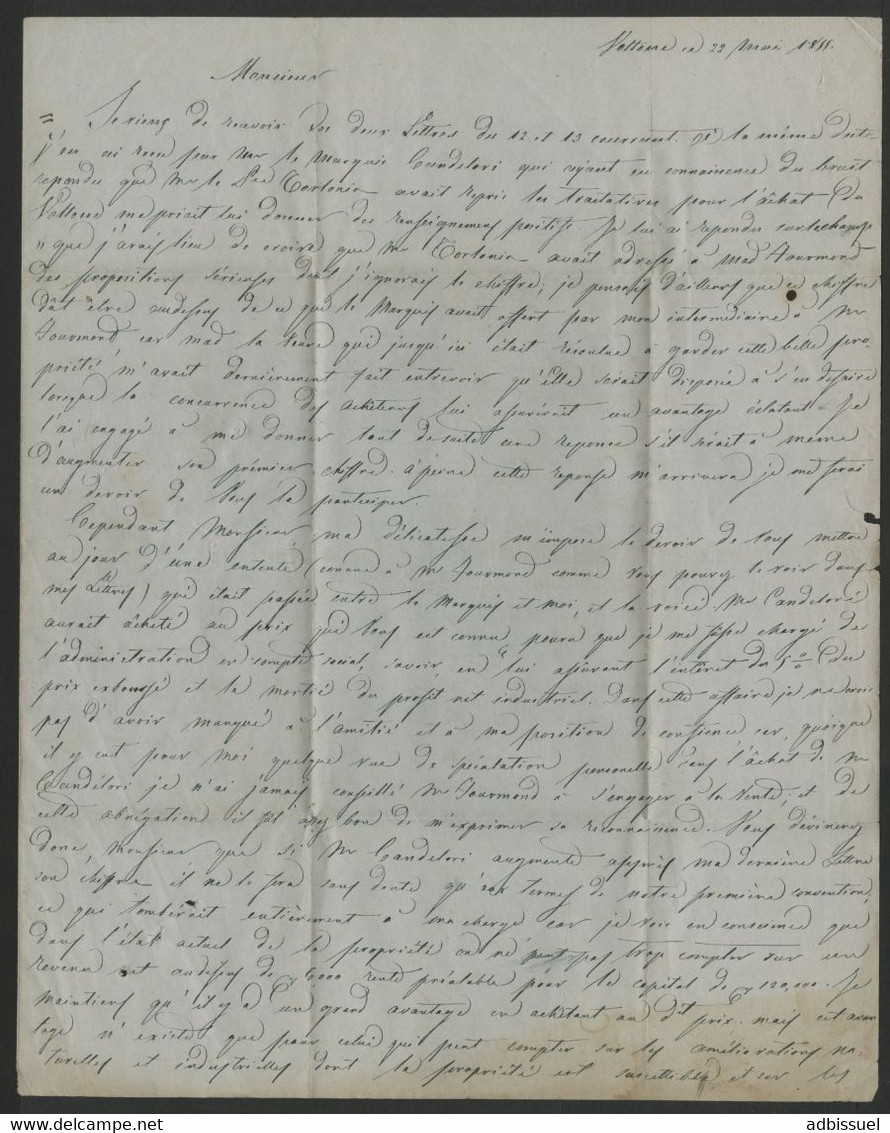 Vallone ce 22 Mai 1855.
Monsieur
Je viens de recevoir vos deux Lettres du 12 et 13 courrant. De la même date
j'en ai reçu par Mr le Marquis Candelori qui ayant eu connaissence du bruit
repandu que Mr le Pce Torlonia avait repris les traitatives pour l'âchat du
Vallone me priait lui donner des renseignement positifs. Je lui ai repondu surlechamp
"que j'avais lieu de croire que Mr Torlonia avait adressé à Mad Fourmond
des propositions sérieuses dont j'ignorais le chiffre; je pensais d'ailleurs que ce chiffre
dût être audessus de ce que le Marquis avait offert par mon intermédiaire à Mr
Fourmond car Mad la veuve qui jusqu'ici était résolue à garder cette belle pro-
priété, m'avait dernièrement fait entrevoir qu'Elle serait disposée à s'en defaire
lorsque la concurrence des acheteurs lui assurerait un avantage éclatant. Je
l'ai engagé à me donner tout desuite une reponse s'il serait à même
d'augmenter son prémier chiffre. à peine cette reponse m'arrivera je me ferai
un devoir de Vous la partecipér.
Cependant Monsieur ma délicatesse m'impose le devoir de Vous mettre
au jour d'une entente (connue à Mr Fourmond comme Vous pouvez le voir dans
mes Lettres) qui était passée entre le Marquis et moi, et la voici. Mr Candelori
aurait âcheté au prix qui Vous est connu pourvu que je me fusse chargé de
l'administration en compte social, savoir, en lui assurant l'intéret du 5 o/o du
prix exboursé et la moitié du profit net industriel. Dans cette affaire je ne crois
pas d'avoir manqué à l'amitié et à ma position de confience car, quoique
il y eut pour moi quelque vue de spéculation personelle dans l'âchat de Mr
Candélori je n'ai jamais conseillé Mr Fourmond à s'engager à la Vente; et de
cette abnégation il fût assez bon de m'exprimer sa reconnaissence. Vous dévinerez
donc, Monsieur que si Mr Candelori augmente après ma dernière Lettre
son chiffre il ne le fera sans doute qu'aux termes de notre première convention,
ce qui tombérait entièrement à ma charge car je vois en conscience que
dans l'état actuel de la propriété on ne peut pas trop compter sur un
revenu net audessus de 6,000 rente préalable pour le capital de 120,000. Je
maintiens qu'il y a un grand avantage en achetant au dit prix. mais cet avan-
tage n'existe que pour celui qui peut compter sur les améliorations na-
turelles et industrielles dont la propriété est suscettible et sur les
adbissuel